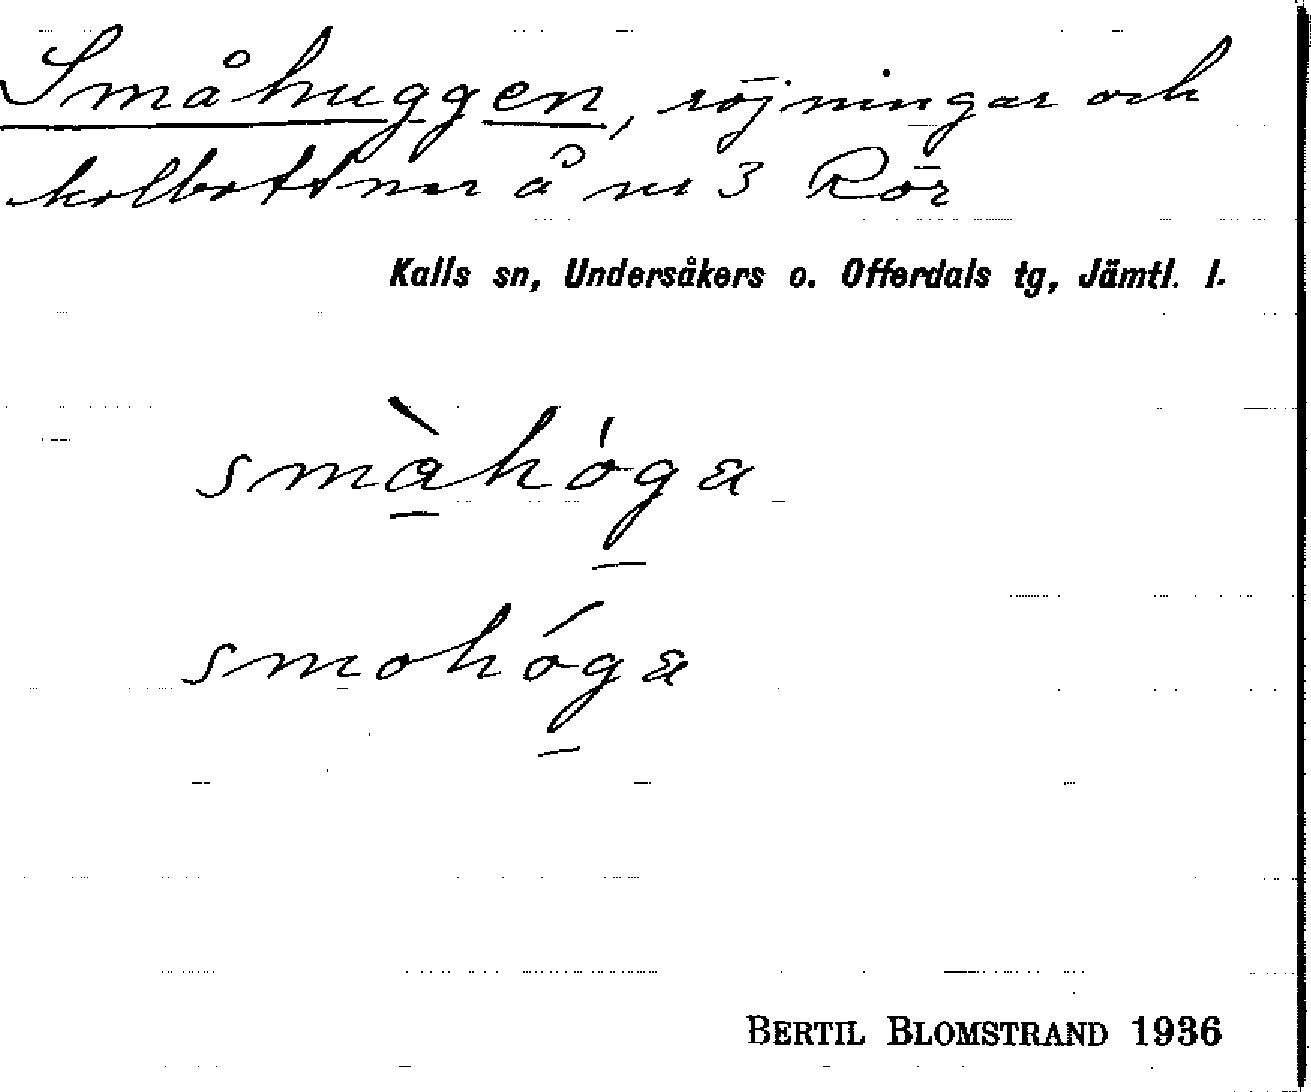 Småhuggen, röjningar och
kolbottnar å nr 3 Rör
Kalls sn, Undersåkers o. Offerdals tg, Jämtl. l.
smàhóga
smohóga
BERTIL BLOMSTRAND 1936